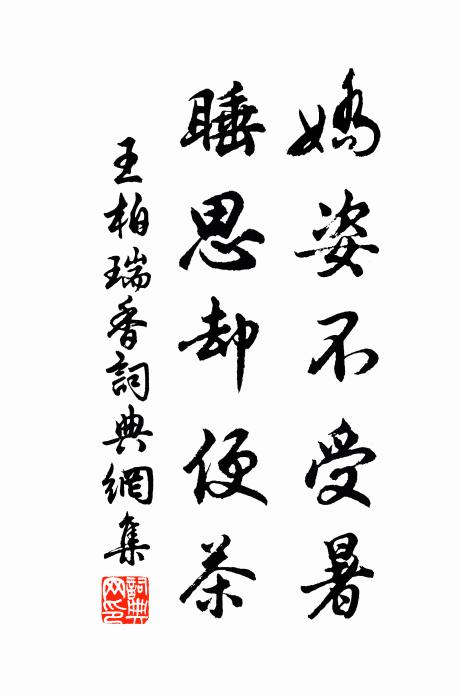 嬌姿不受暑
睡思却便茶
王柏瑞香詞典網集
詞典網印